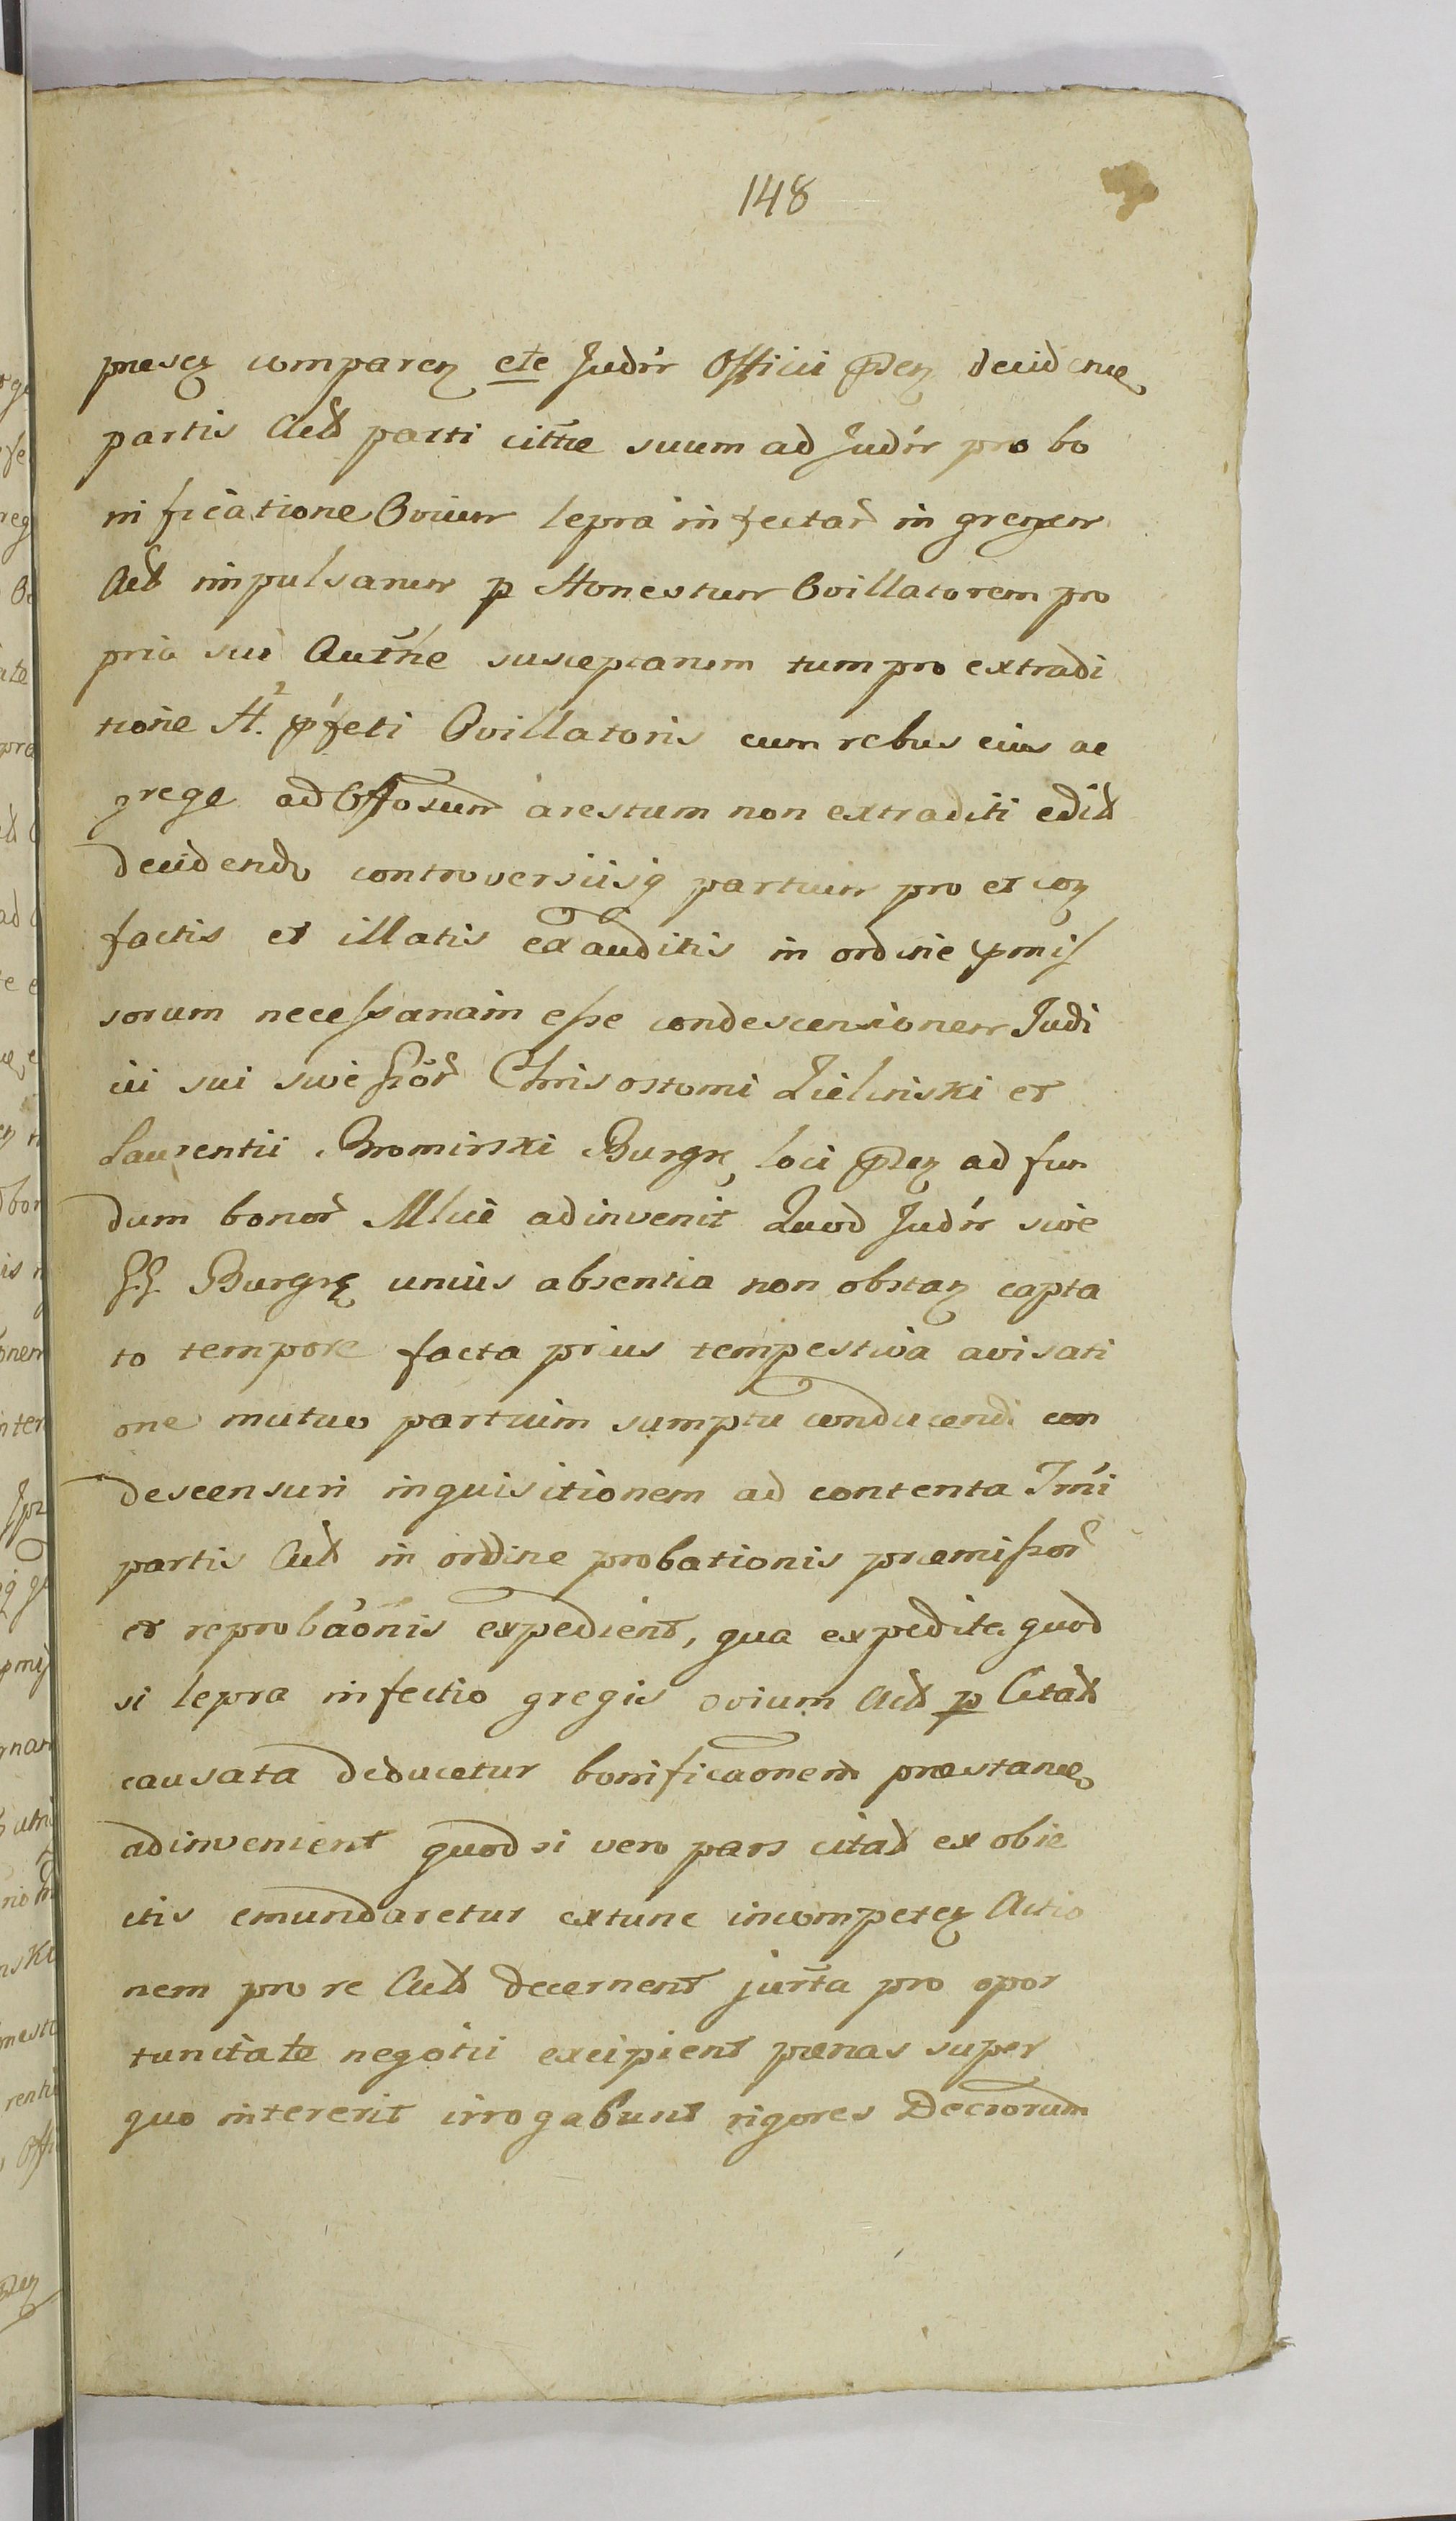 148
praesę comparen ete Judm Officii psen decidenċ
partis Act parti cittae suum ad Judm pro bo
nificatione Ovium lepra infectar in gregem
Act impulsarum p Honestum Ovillatorem pro
pria sui Autthe susceptarum tum pro extradi
tione H. pfeti Ovillatoris cum rebus eius ac
grege ad Offosum arestum non extraditi edit
decidendo controversiisq partium pro et con
factis et illatis exauditis in ordine pmis
sorum necessariam esse condescensionem Judi
cii sui sive Chrisostomi Zielinski et
Laurentii Bromirski Burgr loci psen ad fun
dum bonor adinvenit Quod Judm sive
GG Burgrę unius absentia non obstan capta
to tempore facta prius tempestiva avisati
one mutuo partium sumptu conducendi con
descensuri inquisitionem ad contenta Tmi
partis Act in ordine probationis praemissor
et reprobaonis expedient, qua expedita quod
si lepra infectio gregis ovium Act p Citat
causata deducetur bonificaonem praestan
adinvenient quod si vero pars citat ex obie
ctis emundaretur extunc incompeten Actio
nem pro re Act decernent jurta pro opor
tunitate negotii excipient paenas super
quo intererit irrogabunt rigores Decrorum